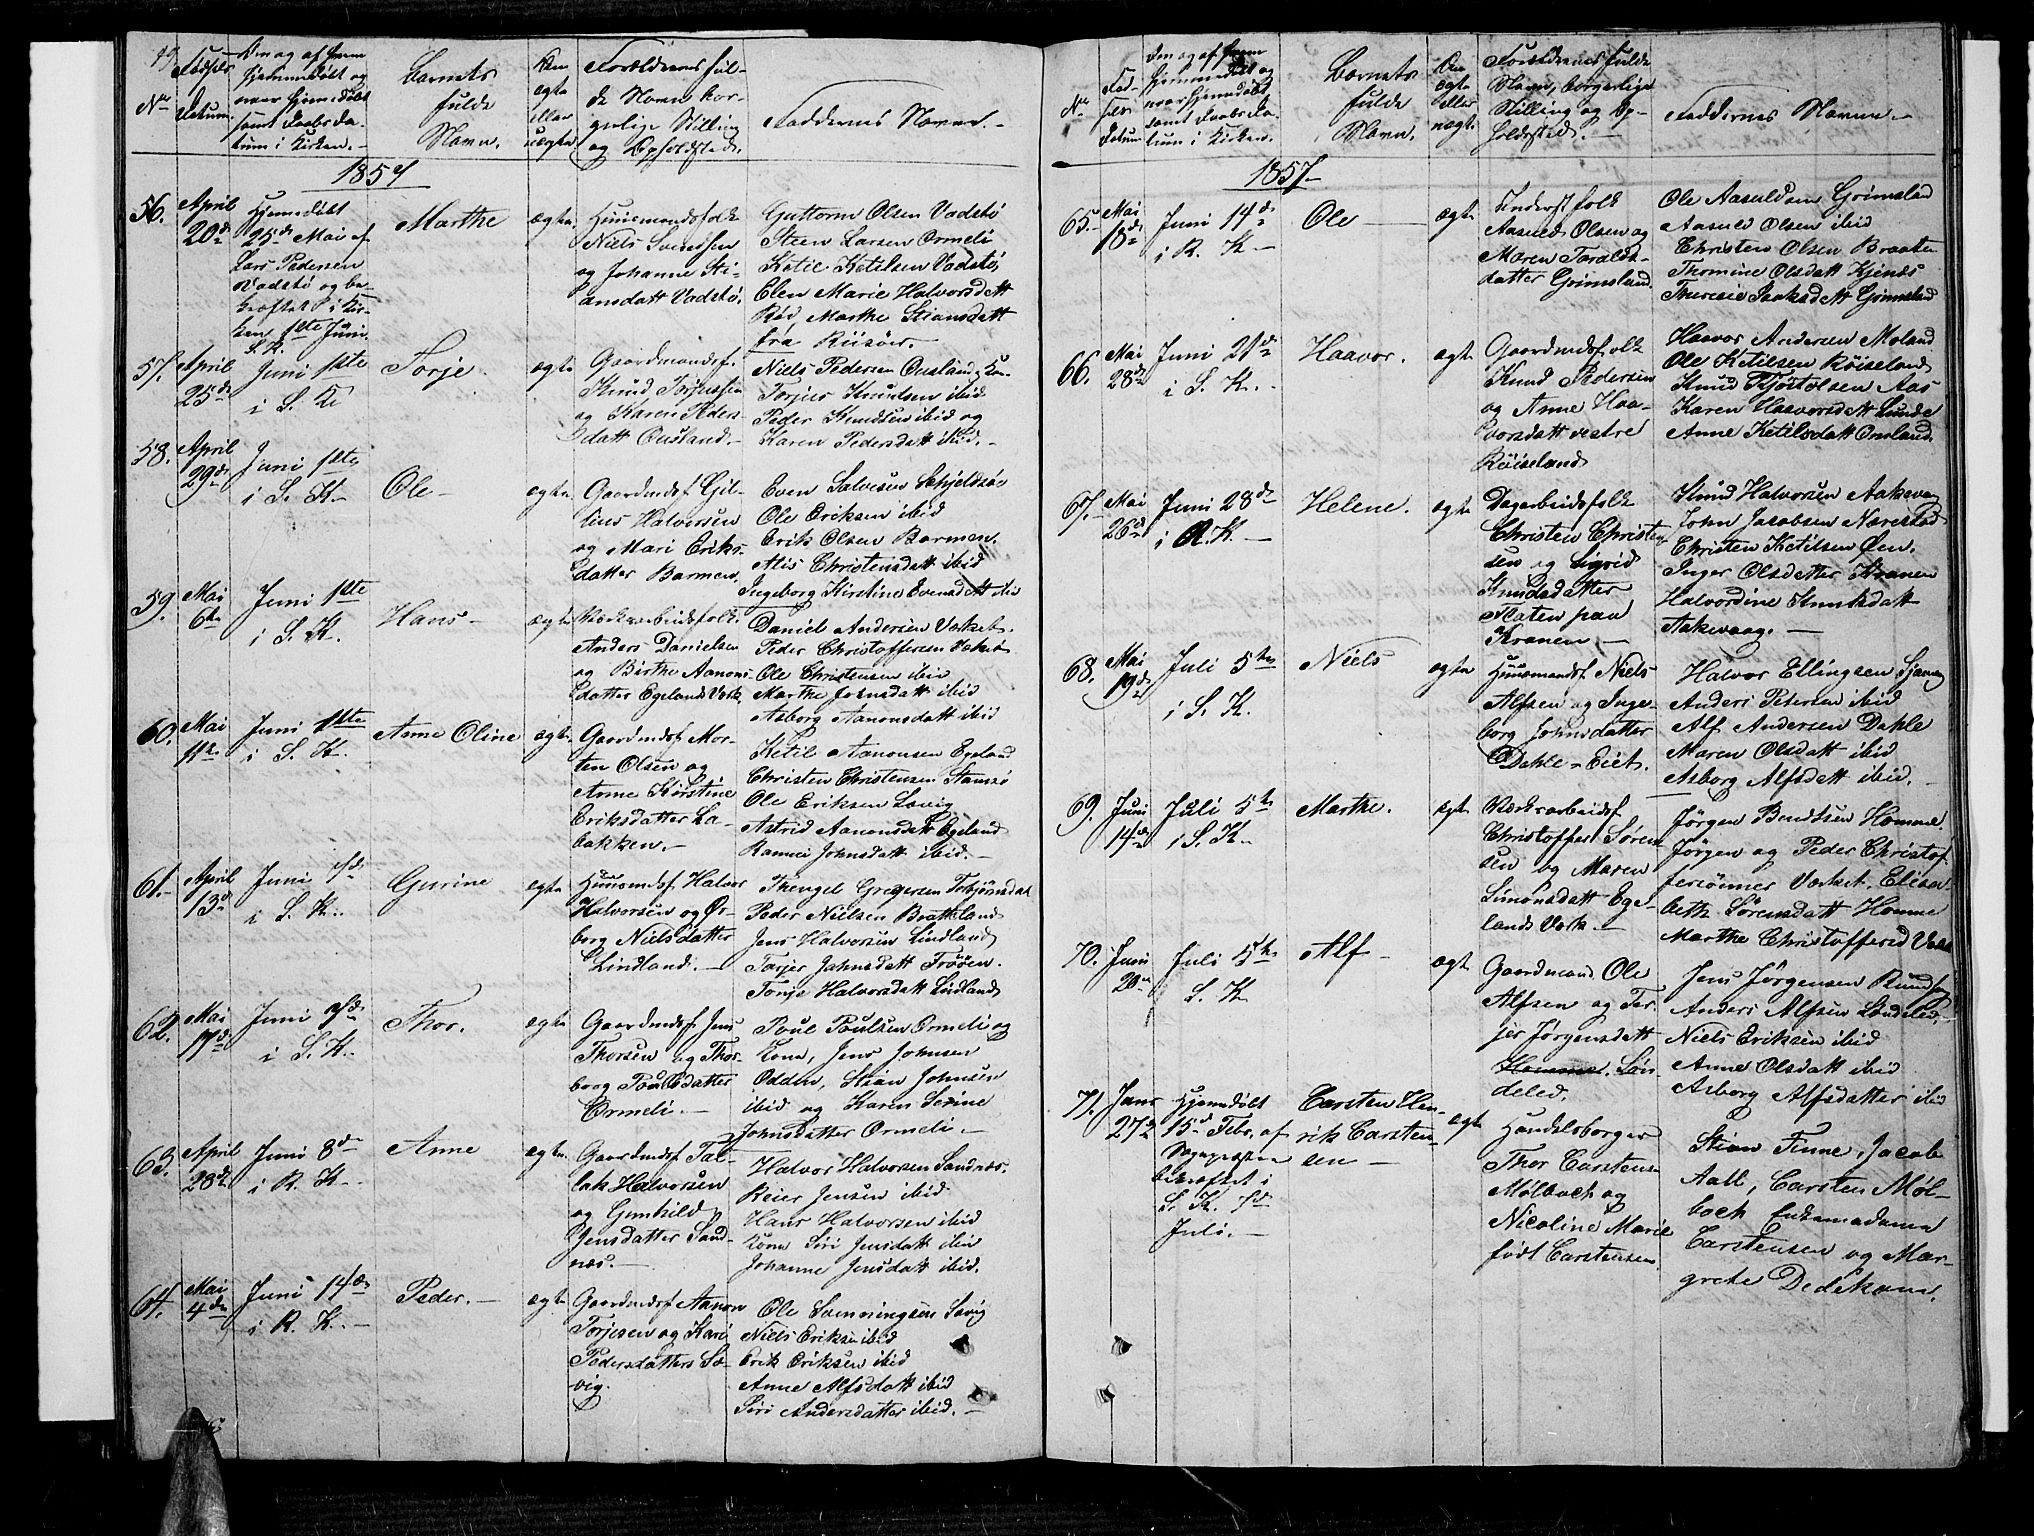 No
Fødsels
Datum.
Om og af hvem
hjemmedøbt og
naar hjemdøbt
samt Daabs Da-
tum i Kirken.-
Barnets
fulde
Navn.
Om
ægte
eller
uægte
Forældrenes ful-
de Navn bor-
gerlige Stilling
og Opholdsted.
Faddernes Navne.-
1857
56.
April
20de
Hjemmedøbt
25de Mai af
Lars Pedersen
Vadstø og be-
kræftet i Kir-
ken 1ste Juni
S. K.
Marthe
ægte
Huusmandsfolk
Niels Svendsen
og Johanne Sti-
ansdatt Vadstø,
Guttorm Olsen Vadstø
Steen Larsen Ormeli
Ketil Ketilsen Vadstø,
Elen Marie Halvorsdatt
Rød Marthe Stiansdatt
fra Riisør.
57.
April
25de
Juni 1ste
i S. K
Torje.
ægte
Gaardmandsf.
Knud Torjussen
og Karen Peders-
datt Ousland.-
Niels Pedersen Ousland, Ko-
Torjer Knudsen ibid
Peder Knudsen ibid og
Karen Pedersdatt ibid.-
58.
April
29de
Juni 1ste
i S. K.-
Ole-
ægte
Gaardmdsf Gil-
lius Halvorsen
og Mari Eriks-
datter Barmen.
Even Salvesen Schjeldsø
Ole Eriksen ibid
Erik Olsen Barmen.
Alis Christensdatt ibid
Ingeborg Kirstine Evensdatt ibi
59.
Mai
6te
Juni 1ste
i S. K.
Hans-
ægte
Værksarbeidsfolk.
Anders Danielsen
og Birthe Aanons-
datter Egelands Værk
Daniel Andersen Værket.
Peder Christoffersen Værket
Ole Christensen ibid
Marthe Johnsdatt ibid
Asborg Aanonsdatt ibid
60.
Mai
11te
Juni 1ste
i S. K.-
Anne Oline
ægte
Gaardmdsf Mor-
ten Olsen og
Anne Kirstine
Eriksdatter La-
bakken.-
Ketil Aanonsen Egeland
Christen Christensen Stamsø
Ole Eriksen Lavig
Astrid Aanonsdatt Egeland
Ramei Johnsdatt ibid.-
61.-
April
13de
Juni 1ste
i S. K..
Gurine
ægte
Huusmdsf Halvor
Halvorsen og Ør-
borg Nielsdatter
Lindland.-
Thengel Gregersen Torbjørnsdal
Peder Nielsen Brattland
Jens Halvorsen Lindland
Torjer Jahnsdatt Trøen.
Tonje Halvorsdatt Lindland
62.
Mai
17de
Juni
i S. K.
Thor.
ægte
Gaardmdsf Jens
Thorsen og Thor-
borg Poulsdatter
Ormeli.-
Poul Poulsen Ormeli og
Kone, Jens Johnsen
Odden, Stian Johnsen
ibid og Karen Serine
Johnsdatter Ormeli.-
63.
April
28de
Juni 8de
i R. K.-
Anne
ægte
Gaardmdsf Tal-
lak Halvorsen
og Gunhild
Jensdatter Sand-
næs.-
Halvor Halvorsen Sandnæs.
Reier Jensen ibid
Hans Halvorsen ibid
Kone Siri Jensdatt ibid
Johanne Jensdatt ibid.
64.
Mai
4de
Juni 14de
i R. K.-
Peder.-
ægte
Gaardmdsf Aanon
Torjesen og Kari
Pedersdatter Sæ-
vig.
Ole Svenningsen Sævig
Niels Eriksen ibid
Erik Eriksen ibid
Anne Alfsdatt ibid
Siri Andersdatter ibid.-
No
Fød-
sels
Datum
Om og af hvem
hjemmedøbt og
naar hjemmedøbt
samt Daabs Da-
tum i Kirken.
Barnets
fulde
Navn.
Om
ægte
eller
uægte
Forældrenes fulde
Navn, borgerlige
Stilling og Op-
holdssted.
Faddernes Navne.-
1857.
65.
Mai
18de
Juni 14de
i R. K-
Ole-
ægte
Inderstfolk
Aasuld Olsen og
Maren Taralds-
datter Grimsland
Ole Aasuldsen Grimsland
Aasuld Olsen ibid
Christen Olsen Braaten
Thomine Olsdatt Kjenes
Theresie Isaksdatt Grimsland
66.
Mai
28de
Juni 21de
i S. K.-
Haavor.
ægte
Gaardmdsfolk
Knud Pedersen
og Anne Haa-
vorsdatt vestre
Røiseland
Haavor Andersen Moland
Ole Ketilsen Røiseland
Knud Kjøstolsen Aas
Karen Haavorsdatt Lunde
Anne Ketilsdatt Omland
67.
Mai
26de
Juni 28de
i R. K.-
Helene.
ægte
Dagarbeidsfolk
Christen Christen-
sen og Sigrid
Knudsdatter
Fløten paa
Kranen-
Knud Halvorsen Aakevaag
John Jacobsen Nærestad
Christen Ketilsen Øen.
Inger Olsdatter Kranen
Halvordine Knutsdatt
Aakevaag.-
68.
Mai
19de
Juli 5te
i S. K.
Niels
ægte
Huusmandsf Niels
Alfsen og Inge-
borg Johnsdatter
Dahle-Eiet.
Halvor Ellingsen
Anders Petersen ibid
Alf Andersen Dahle
Maren Olsdatt ibid
Asborg Alfsdatt ibid.
69.
Juni
14de
Juli 5te
i S. K.
Marthe.
ægte
Værksarbeidsf
Christoffer Søren-
sen og Maren
Simonsdatt Ege-
lands Værk.-
Jørgen Bendtsen Homme.
Jørgen og Peder Christof-
fersønner Værket, Elisa-
beth Sørensdatt Homme
Marthe Christoffersd Værk
70.
Juni
20de
Juli 5te
S. K
Alf-
ægte
Gaardmand Ole
Alfsen og Tor-
jer Jørgensdatt
Homme. Søn-
deled.
Jens Jørgensen
Anders Alfsen Søndeled,
Niels Eriksen ibid
Anne Olsdatt ibid
Asborg Alfsdatter ibid
71.
Janr
27de
Hjemmedøbt
15de Febr. af
Sognepresten
bekræftet i
S. K. 5te
Juli.-
Carsten Hen-
rik Carsten-
sen-
ægte
Handelsborger
Thor Carstens
Mølbach og
Nicoline Marie
født Carstensen
Stian Finne, Jacob
Aall, Carsten Møl-
bach Enkemadame
Carstensen og Mar-
grete Dedekam.